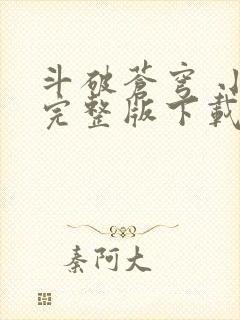 斗破苍穹
完整版下載
秦阿大